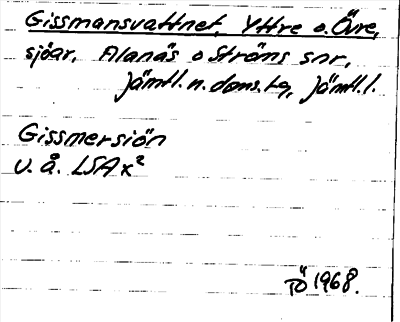 Gissmansvattnet, Yttre o. Övre,
sjöar, Alanäs o Ströms snr,
Jämtl. n. doms. tg, Jämtl. l.
Gissmersjön
u. å. LSA x²
TÖ 1968.